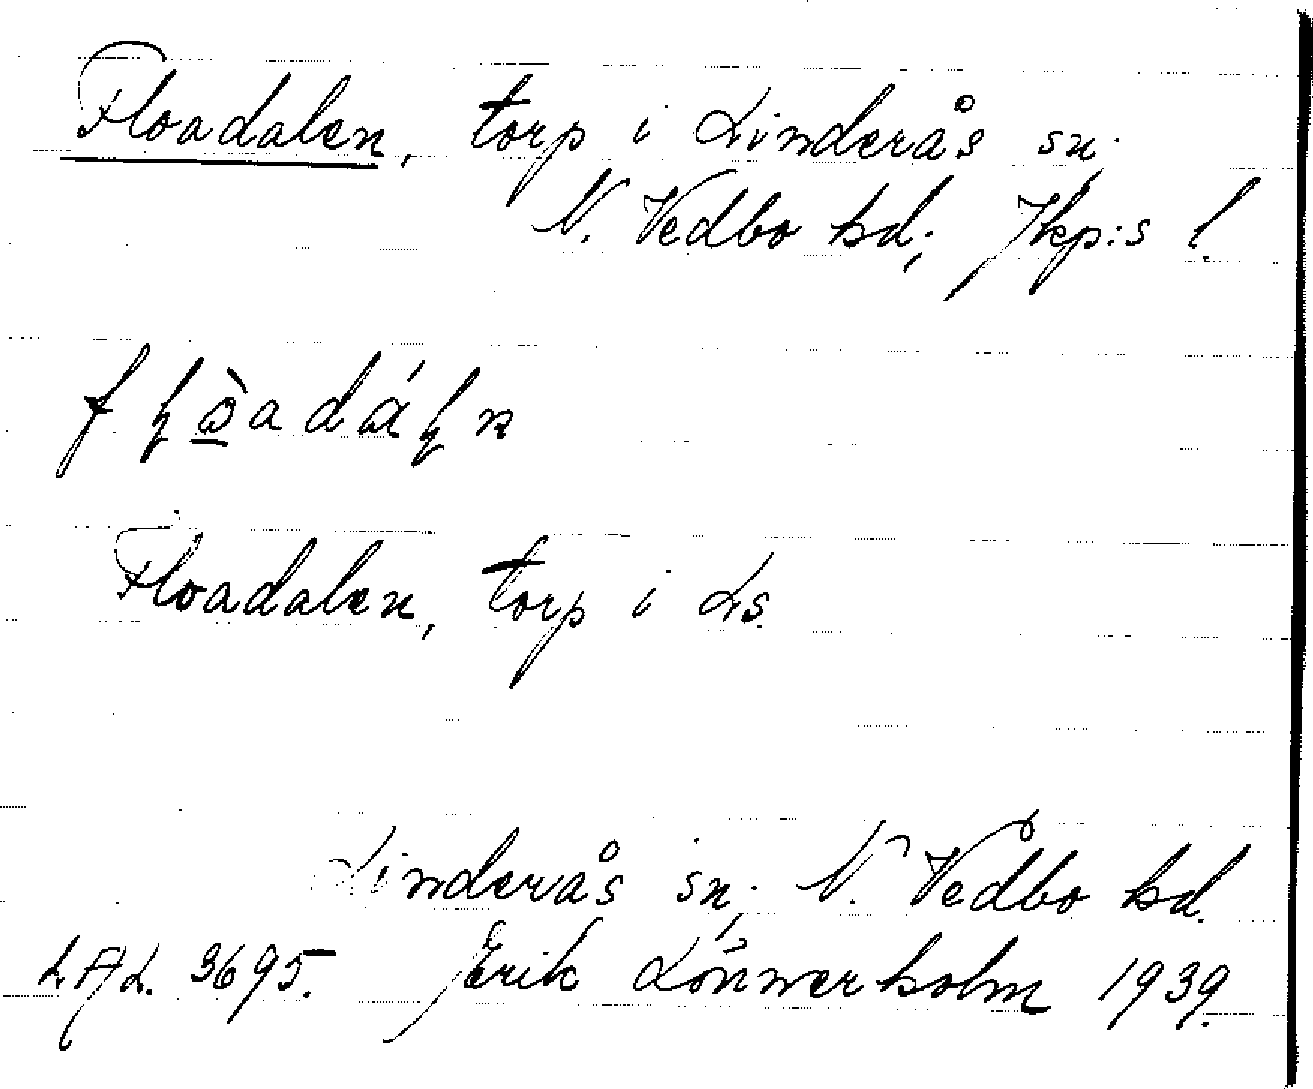 Floadalen, torp i Linderås sn.
N. Vedbo hd; Jkp:s l.
Floadalen, torp i Ls.
Linderås sn; N. Vedbo hd.
LAL. 3695. Erik Lönnerholm 1939.